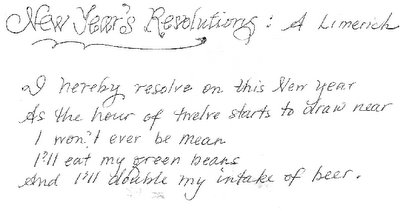 New Year's Resolutions: A Limerick
I hereby resolve on this New Year
As the hour of twelve starts to draw near
I won't ever be mean
I'll eat my green beans
And I'll double my intake of beer.